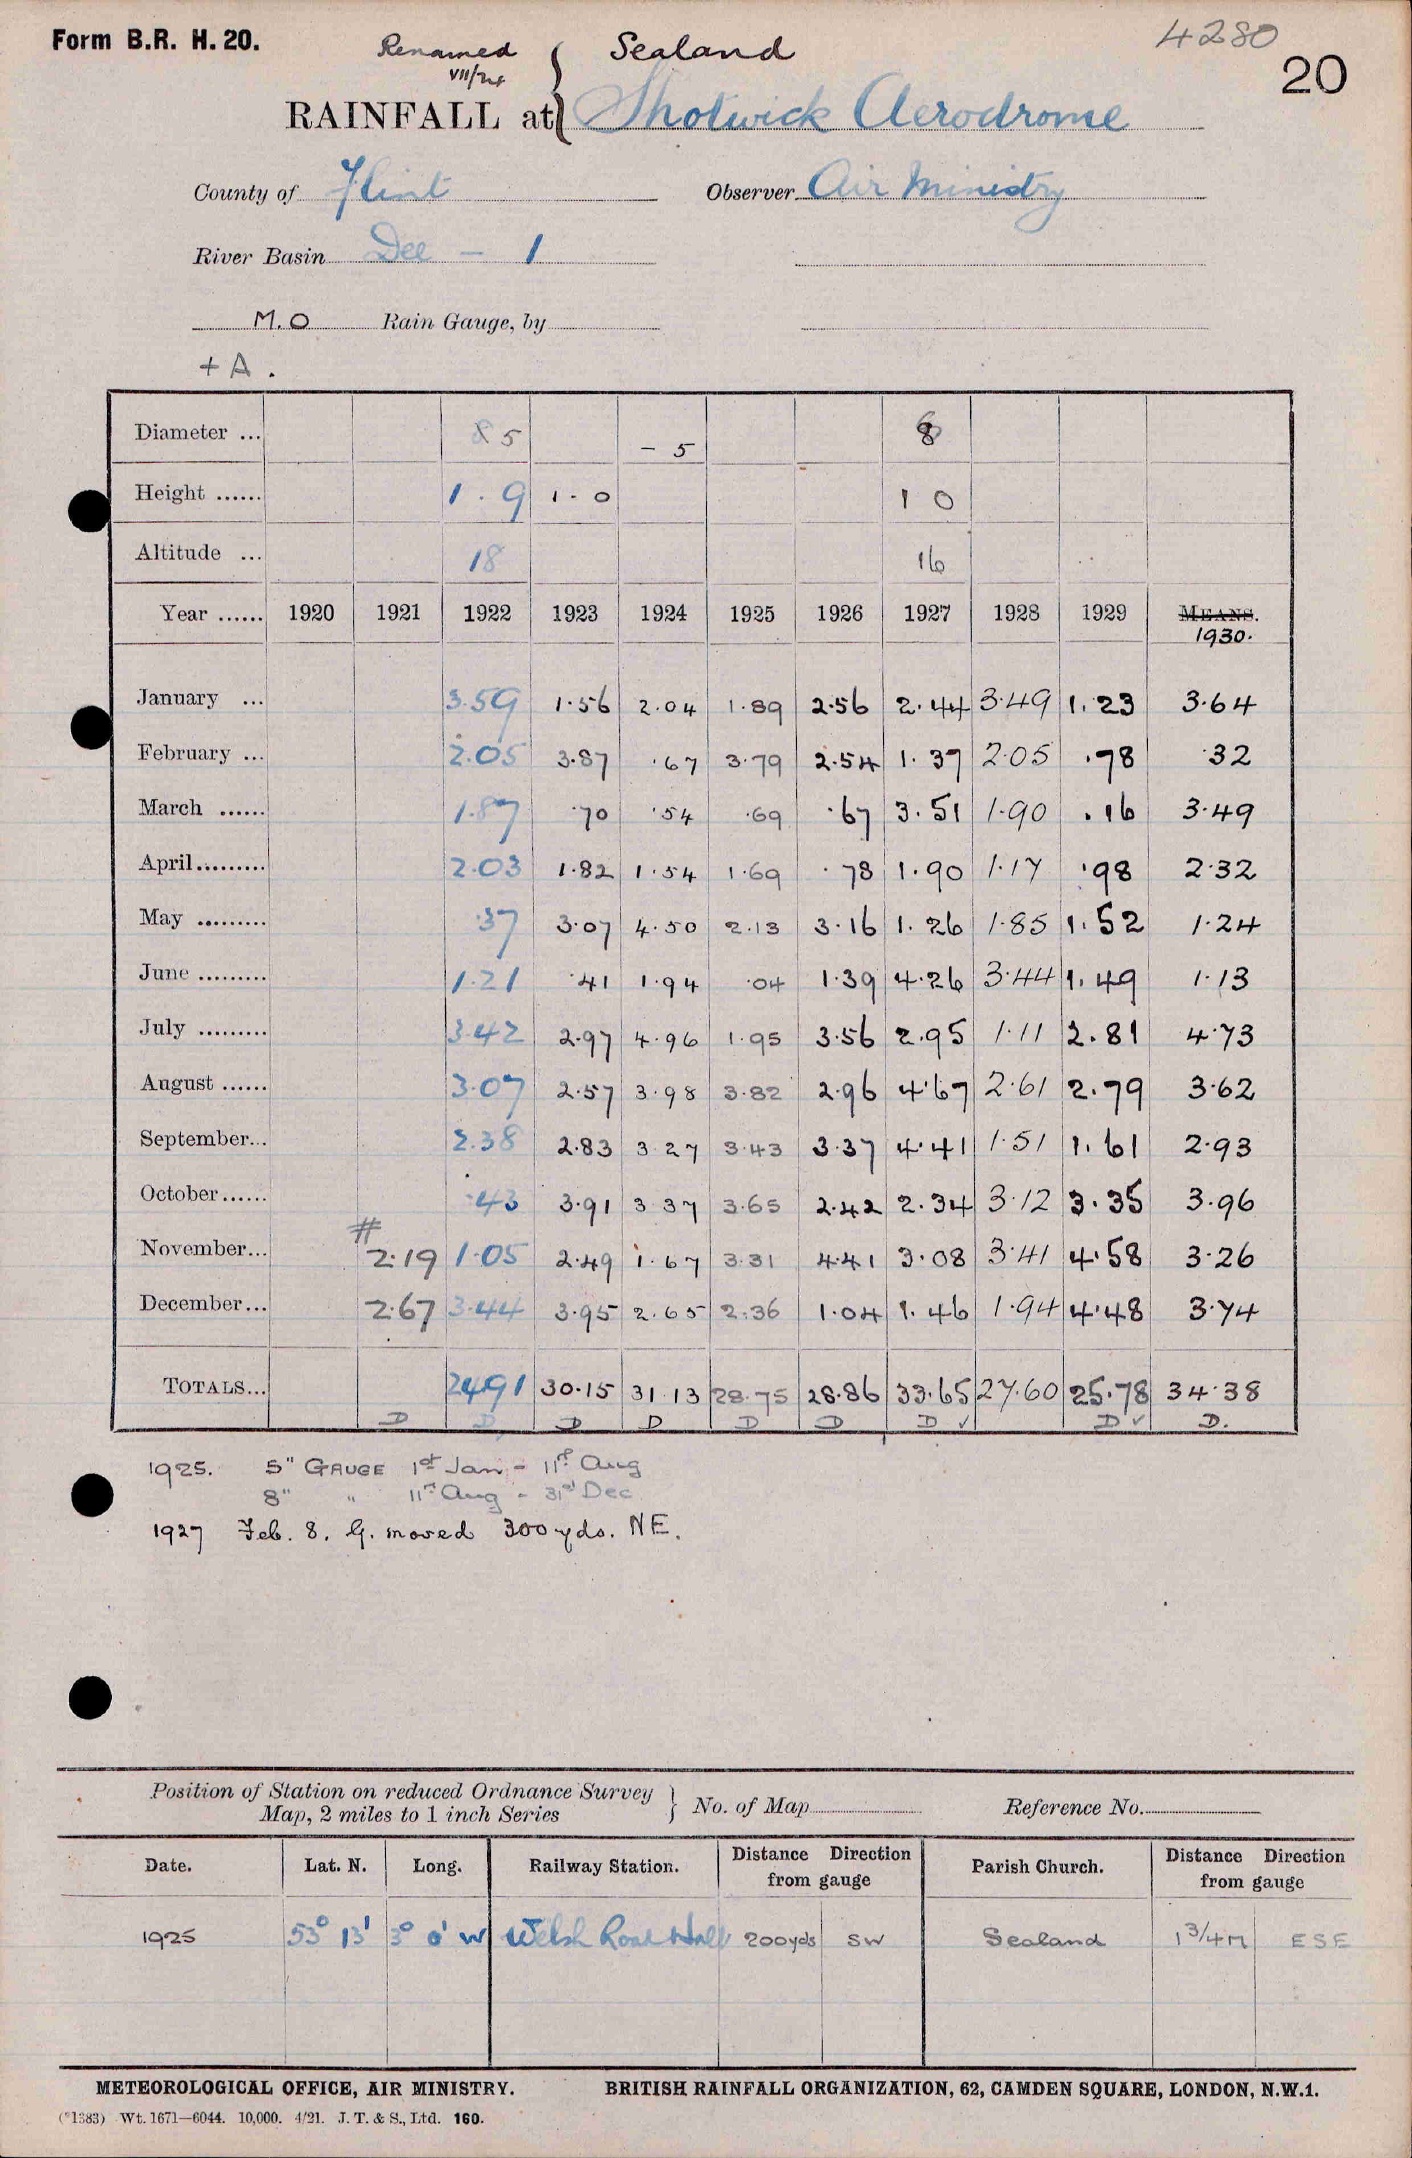 Form B.R. H. 20.
4280
20
Renamed VII/24 { Sealand
RAINFALL at { Shotwick Aerodrome
County of Flint Observer Air Ministry
River Basin Dee - 1
M.O Rain Gauge, by
+ A .
Diameter ... 8 5 - 5 8
Height ...... 1 . 9 1 - 0 1 0
Altitude ... 18 16
Year ...... 1920 1921 1922 1923 1924 1925 1926 1927 1928 1929 MEANS. 1930.
January ... 3.59 1.56 2.04 1.89 2.56 2.44 3.49 1.23 3.64
February ... 2.05 3.87 .67 3.79 2.54 1.37 2.05 .78 .32
March ...... 1.87 .70 .54 .69 .67 3.51 1.90 .16 3.49
April......... 2.03 1.82 1.54 1.69 .78 1.90 1.17 .98 2.32
May ......... .37 3.07 4.50 2.13 3.16 1.26 1.85 1.52 1.24
June ......... 1.21 .41 1.94 .04 1.39 4.26 3.44 1.49 1.13
July ......... 3.42 2.97 4.96 1.95 3.56 2.95 1.11 2.81 4.73
August ...... 3.07 2.57 3.98 3.82 2.96 4.67 2.61 2.79 3.62
September... 2.38 2.83 3.27 3.43 3.37 4.41 1.51 1.61 2.93
October...... .43 3.91 3.37 3.65 2.42 2.34 3.12 3.35 3.96
#
November... 2.19 1.05 2.49 1.67 3.31 4.41 3.08 3.41 4.58 3.26
December... 2.67 3.44 3.95 2.65 2.36 1.04 1.46 1.94 4.48 3.74
TOTALS... 24.91 30.15 31.13 28.75 28.86 33.65 27.60 25.78 34.38
D D D D D D D ✓ D ✓ D.
1925. 5" GAUGE 1st Jan - 11th Aug
8" " 11th Aug - 31st Dec
1927 Feb. 8. G. moved 300 yds. NE.
Position of Station on reduced Ordnance Survey
Map, 2 miles to 1 inch Series } No. of Map Reference No.
Date. Lat. N. Long. Railway Station. Distance Direction from gauge Parish Church. Distance Direction from gauge
1925 53° 13' 3° 0' W Welsh Road Hall 200yds SW Sealand 1 3/4 M ESE
METEOROLOGICAL OFFICE, AIR MINISTRY. BRITISH RAINFALL ORGANIZATION, 62, CAMDEN SQUARE, LONDON, N.W.1.
(*1383) Wt. 1671—6044. 10,000. 4/21. J. T. & S., Ltd. 160.